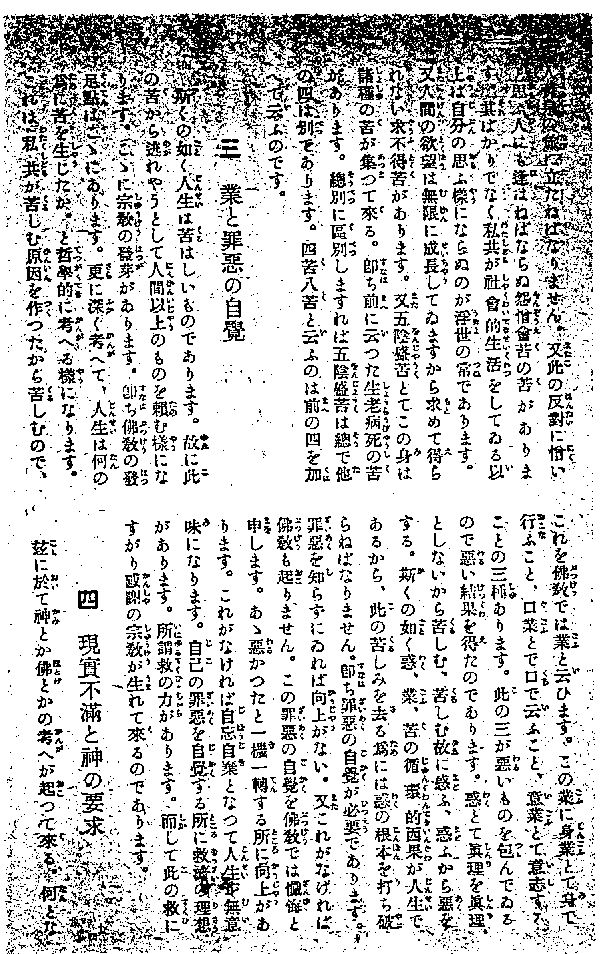 立たねばなりません。又此の反對に憎い
人にも逢はねばならぬ怨憎會苦の苦がありま
す。其ばかりでなく私共が社會的生活をしてゐる以
上は自分の思ふ樣にならぬのが浮世の常であります。
又人間の欲望は無限に成長してゐますから求めて得ら
れない求不得苦があります。又五陰盛苦とてこの身は
諸種の苦が集つて來る。卽ち前に云つた生老病死の苦
があります。總別に區別しますれば五陰盛苦は總で他
の四は別であります。四苦八苦と云ふのは前の四を加
へて云ふのです。
三 業と罪惡の自覺
斯くの如く人生は苦はしいものであります。故に此
の苦から逃れやうとして人間以上のものを賴む樣にな
ります。こゝに宗敎の發芽があります。卽ち佛敎の發
足點はこゝにあります。更に深く考へて、人生は何の
爲に苦を生じたか。と哲學的に考へる樣になります。
これは、私共が苦しむ原因を作つたから苦しむので、
これを佛敎では業と云ひます。この業に身業とて身で
行ふこと、口業とて口で云ふこと、意業とて意志する
ことの三種あります。此の三が惡いものを包んでゐる
ので惡い結果を得たのであります。惑とて眞理を眞理
としないから苦しむ、苦しむ故に惑ふ、惑ふから惡を
する。斯くの如く惑、業、苦の循環的因果が人生で
あるから、此の苦しみを去る爲には惑の根本を打ち破
らねばなりません。卽ち罪惡の自覺が必要であります。
罪惡を知らずにゐれば向上がない。又これがなければ
佛敎も起りません。この罪惡の自覺を佛敎では懺悔と
申します。あゝ惡かつたと一機一轉する所に向上があ
ります。これがなければ自忘自棄となつて人生も無意
味になります。自己の罪惡を自覺する所に救濟の理想
があります。所謂救の力があります。而して此の救に
すがり感謝の宗敎が生れて來るのであります。
四 現實不滿と神の要求
玆に於て神とか佛とかの考へが起つて來る。何とな